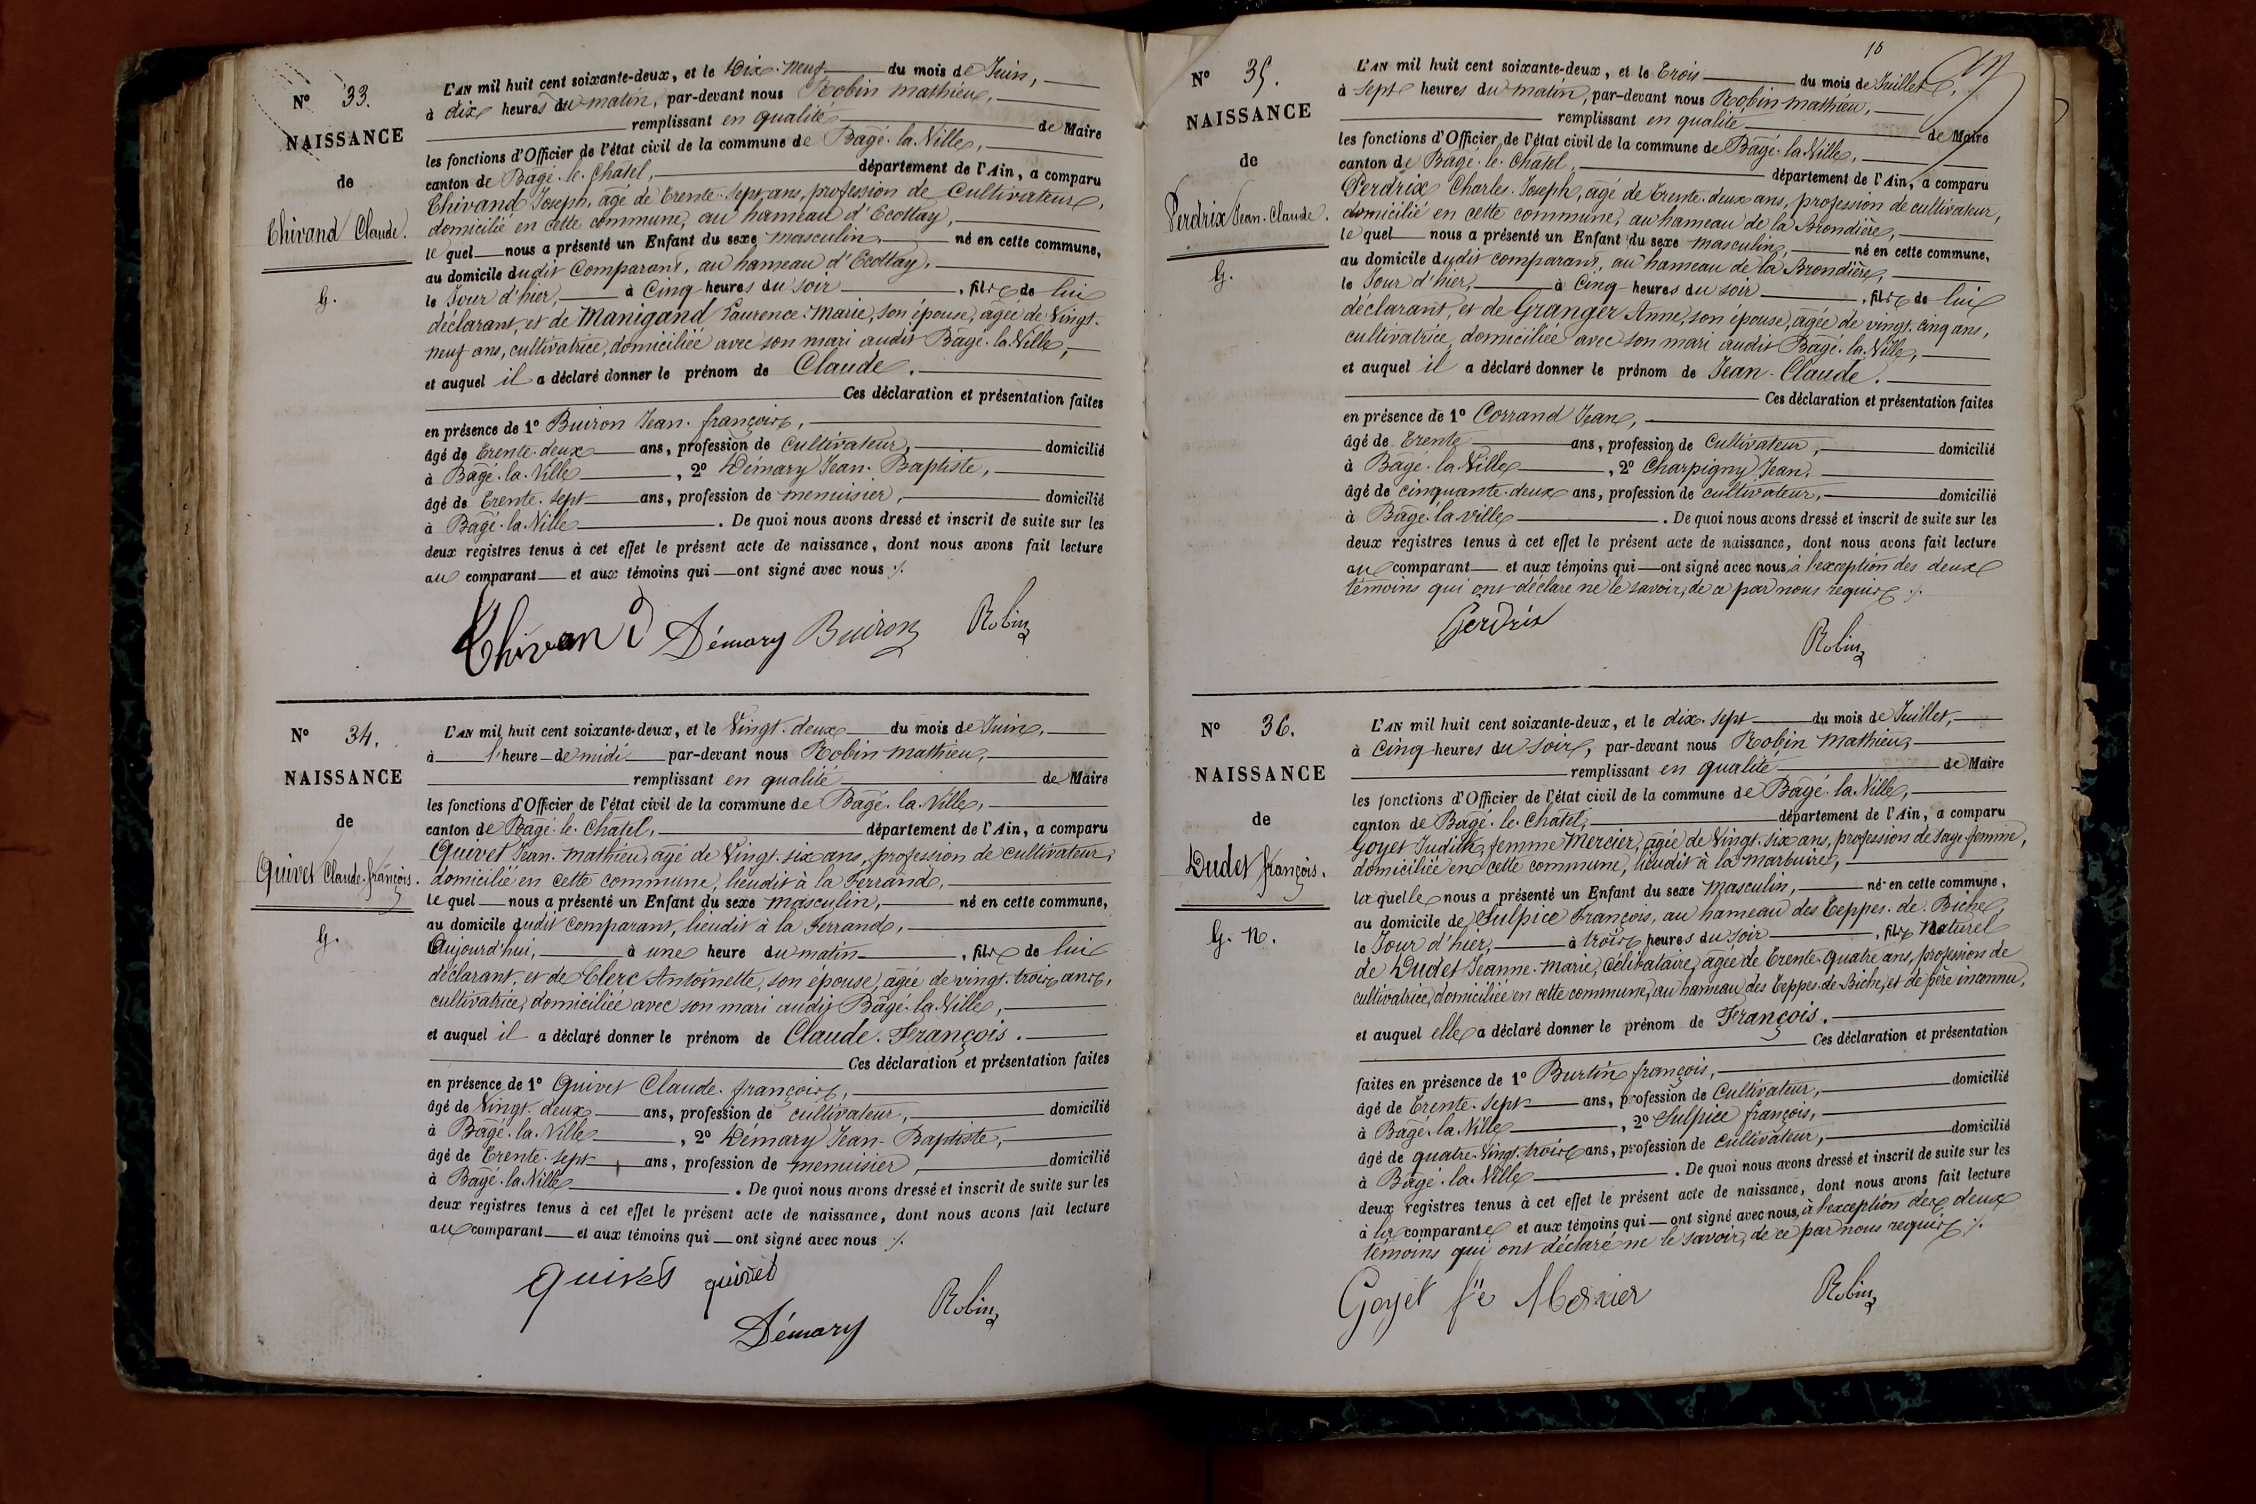 N° 33.
NAISSANCE
de
Thivand Claude.
G.
L'AN mil huit cent soixante-deux, et le Dix-neuf du mois de Juin,
à dix heures du matin, par-devant nous Robin Mathieu,
remplissant en qualité de Maire
les fonctions d'Officier de l'état civil de la commune de Bâgé-la-Ville,
canton de Bâgé-le-Châtel, département de l'Ain, a comparu
Thivand Joseph, âgé de trente-sept ans, profession de cultivateur,
domicilié en cette commune, au hameau d'Ecottay,
le quel nous a présenté un Enfant du sexe masculin, né en cette commune,
au domicile dudit Comparant, au hameau d'Ecottay,
le Jour d'hier, à Cinq heures du soir, fils de lui
déclarant, et de Manigand Laurence-Marie, son épouse, âgée de vingt-
neuf ans, cultivatrice, domiciliée avec son mari audit Bâgé-la-Ville,
et auquel il a déclaré donner le prénom de Claude.
Ces déclaration et présentation faites
en présence de 1° Buiron Jean-françois,
âgé de trente-deux ans, profession de cultivateur, domicilié
à Bâgé-la-Ville, 2° Démary Jean-Baptiste,
âgé de trente-sept ans, profession de menuisier, domicilié
à Bâgé-la-Ville. De quoi nous avons dressé et inscrit de suite sur les
deux registres tenus à cet effet le présent acte de naissance, dont nous avons fait lecture
au comparant et aux témoins qui ont signé avec nous ./.
Thivand Démary Buiron Robin
N° 34.
NAISSANCE
de
Quivet Claude-françois.
G.
L'AN mil huit cent soixante-deux, et le Vingt-deux du mois de Juin,
à l'heure de midi par-devant nous Robin Mathieu,
remplissant en qualité de Maire
les fonctions d'Officier de l'état civil de la commune de Bâgé-la-Ville,
canton de Bâgé-le-Châtel, département de l'Ain, a comparu
Quivet Jean-Mathieu, âgé de Vingt-six ans, profession de cultivateur,
domicilié en cette commune, lieudit à la Ferrande,
le quel nous a présenté un Enfant du sexe masculin, né en cette commune,
au domicile dudit comparant, lieudit à la Ferrande,
Aujourd'hui, à une heure du matin, fils de lui
déclarant, et de Clerc Antoinette, son épouse, âgée de vingt-trois ans,
cultivatrice, domiciliée avec son mari audit Bâgé-la-Ville,
et auquel il a déclaré donner le prénom de Claude-François.
Ces déclaration et présentation faites
en présence de 1° Quivet Claude-françois,
âgé de Vingt-deux ans, profession de cultivateur, domicilié
à Bâgé-la-Ville, 2° Démary Jean-Baptiste,
âgé de trente-sept ans, profession de menuisier, domicilié
à Bâgé-la-Ville. De quoi nous avons dressé et inscrit de suite sur les
deux registres tenus à cet effet le présent acte de naissance, dont nous avons fait lecture
au comparant et aux témoins qui ont signé avec nous ./.
quivet quivet
Démary Robin
N° 35.
NAISSANCE
de
Perdrix Jean-Claude.
G.
L'AN mil huit cent soixante-deux, et le trois du mois de Juillet,
à sept heures du matin, par-devant nous Robin Mathieu,
remplissant en qualité de Maire
les fonctions d'Officier de l'état civil de la commune de Bâgé-la-Ville,
canton de Bâgé-le-Châtel, département de l'Ain, a comparu
Perdrix Charles-Joseph, âgé de trente-deux ans, profession de cultivateur,
domicilié en cette commune, au hameau de la Brondière,
le quel nous a présenté un Enfant du sexe masculin, né en cette commune,
au domicile dudit comparant, au hameau de la Brondière,
le Jour d'hier, à Cinq heures du soir, fils de lui
déclarant, et de Granger Anne, son épouse, âgée de vingt-cinq ans,
cultivatrice, domiciliée avec son mari audit Bâgé-la-Ville,
et auquel il a déclaré donner le prénom de Jean-Claude.
Ces déclaration et présentation faites
en présence de 1° Corrand Jean,
âgé de trente ans, profession de cultivateur, domicilié
à Bâgé-la-Ville, 2° Charpigny Jean,
âgé de cinquante-deux ans, profession de cultivateur, domicilié
à Bâgé-la-ville. De quoi nous avons dressé et inscrit de suite sur les
deux registres tenus à cet effet le présent acte de naissance, dont nous avons fait lecture
au comparant et aux témoins qui ont signé avec nous, à l'exception des deux
témoins qui ont déclaré ne le savoir, de ce par nous requis ./.
Perdrix
Robin
N° 36.
NAISSANCE
de
Dudet françois.
G. N.
L'AN mil huit cent soixante-deux, et le dix-sept du mois de Juillet,
à Cinq heures du soir, par-devant nous Robin Mathieu,
remplissant en qualité de Maire
les fonctions d'Officier de l'état civil de la commune de Bâgé-la-Ville,
canton de Bâgé-le-Châtel, département de l'Ain, a comparu
Goyet Judith, femme Mercier, âgée de Vingt-six ans, profession de sage-femme,
domiciliée en cette commune, lieudit à la Marbuire,
la quelle nous a présenté un Enfant du sexe Masculin, né en cette commune,
au domicile de Sulpice François, au hameau des Teppes-de-Biche,
le Jour d'hier, à trois heures du soir, fils Naturel
de Dudet Jeanne-Marie, Célibataire, âgée de trente-quatre ans, profession de
cultivatrice, domiciliée en cette commune, au hameau des Teppes-de-Biche, et de père inconnu,
et auquel elle a déclaré donner le prénom de François.
Ces déclaration et présentation
faites en présence de 1° Burtin françois,
âgé de trente-sept ans, profession de Cultivateur, domicilié
à Bâgé-la-Ville, 2° Sulpice françois,
âgé de quatre-vingt-trois ans, profession de cultivateur, domicilié
à Bâgé-la-Ville. De quoi nous avons dressé et inscrit de suite sur les
deux registres tenus à cet effet le présent acte de naissance, dont nous avons fait lecture
à la comparante et aux témoins qui ont signé avec nous, à l'exception des deux
témoins qui ont déclaré ne le savoir, de ce par nous requis ./.
Goyet fe Mercier Robin